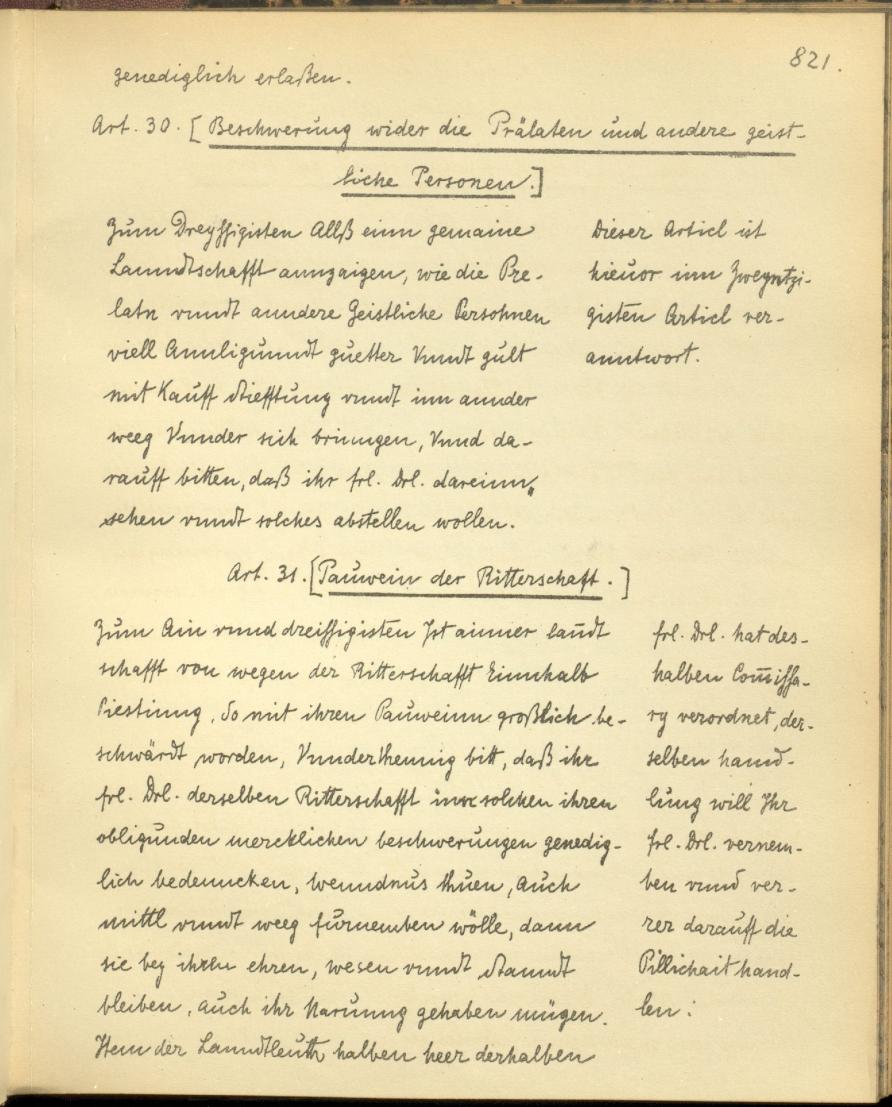 821.
genediglich erlaßen.
Art. 30. [Beschwerung wider die Prälaten und andere geist-
liche Personen.]
Zum Dreyssigisten Allß einn gemaine
Lanndtschafft annzaigen, wie die Pre-
latn vnndt anndere Geistliche Persohnen
viell Annligunndt guetter Vnndt gült
mit Kauff Stiefftung vnndt inn annder
weeg Vnnder sich brinngen, Vnnd da-
rauff bitten, daß ihr frl. Drl. dareinn
sehen vnndt solches abstellen wollen.
Dieser Articl ist
hieuor inn Zweyntzi-
gisten Articl ver-
anntwort.
Art. 31. [Pauwein der Ritterschaft.]
Zum Ain vnnd dreissigisten Ist ainner landt
schafft von wegen der Ritterschafft Einnhalb
Piestinng, So mit ihren Pauweinn großlich be-
schwärdt worden, Vnnderthennig bitt, daß ihr
frl. Drl. derselben Ritterschafft solchen ihren
obligunden mercklichen beschwerungen genedig-
lich bedenncken, wenndnus thuen, auch
mittl vnndt weeg fürnemben wölle, dann
sie bey ihren ehren, wesen vnndt Stanndt
bleiben, auch ihr Narunng gehaben mügen.
Item der Lanndtleuth halben heer derhalben
frl. Drl. hat des-
halben Com̄issa-
ry verordnet, der-
selben hannd-
lung will Ihr
frl. Drl. vernem-
ben vnnd ver-
rer darauff die
Pillichait hand-
len: